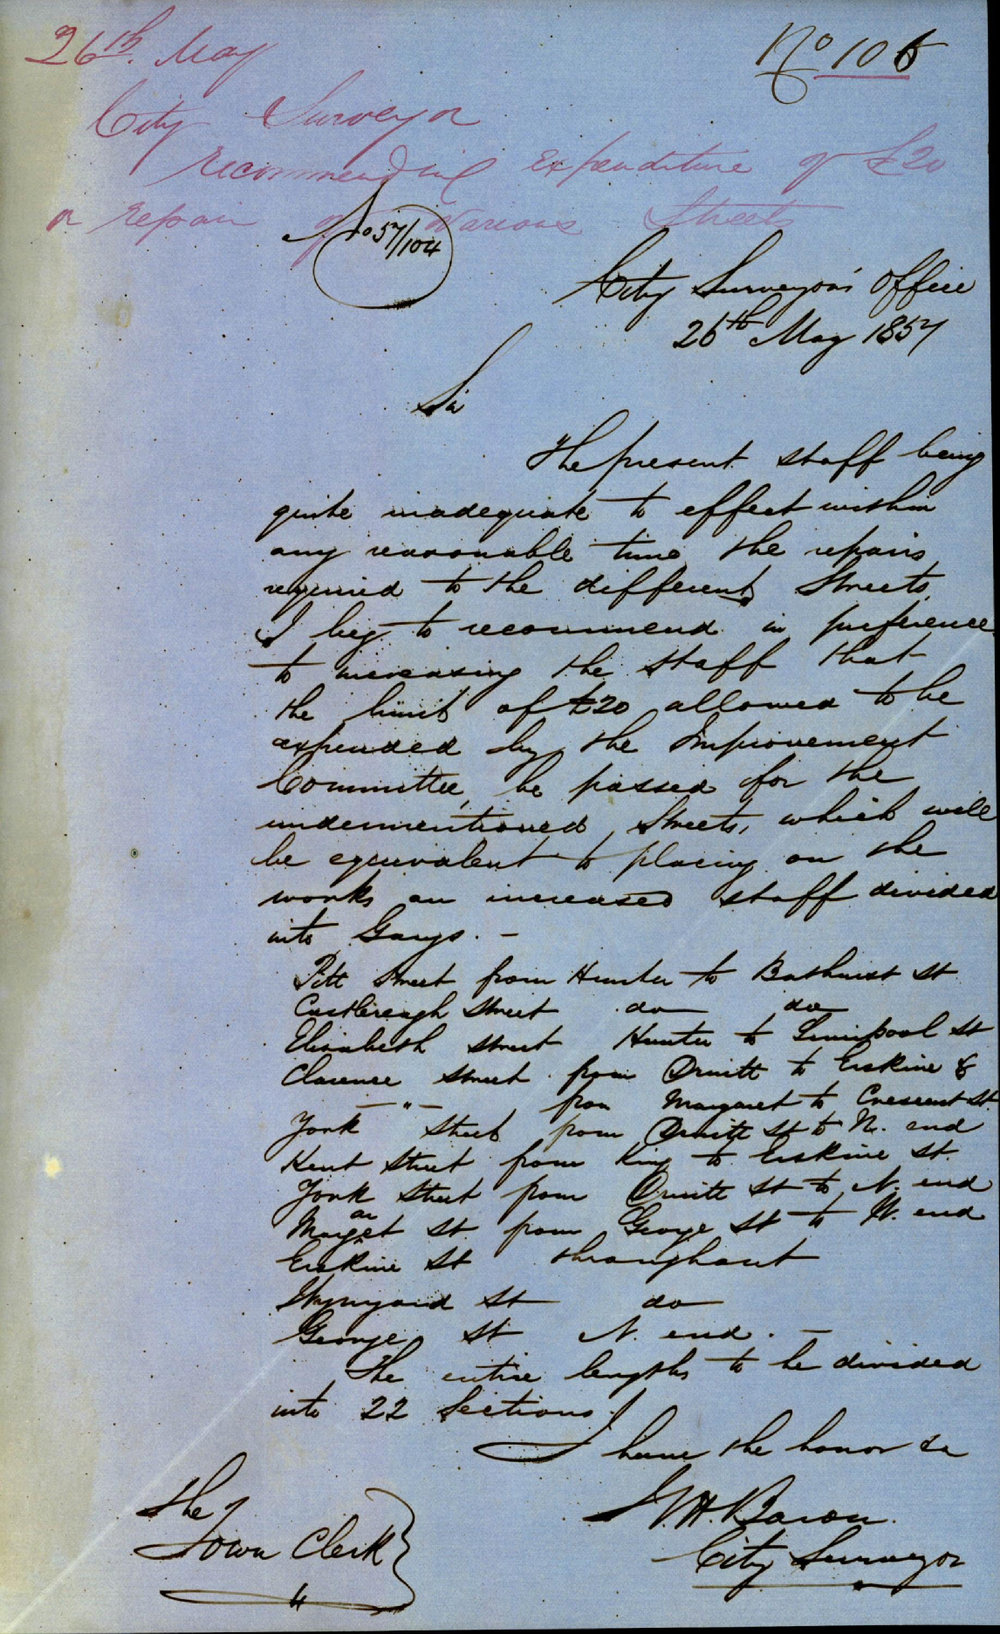 26th. May
No 106
City Surveyor
recommending expenditure of £20
on repair of various Streets
No 57/104
City Surveyors Office
26th May 1857
Sir
The present staff being
quite inadequate to effect within
any reasonable time the repairs
required to the different Streets,
I beg to recommend in preference
to increasing the staff that
the limit of £20 allowed to be
expended by the Improvement
Committee, be passed for the
undermentioned Streets, which will
be equivalent to placing on the
works an increased staff divided
into Gangs. -
Pitt Street from Hunter to Bathurst St
Castlereagh Street do do
Elizabeth Street Hunter to Liverpool St
Clarence Street from Druitt to Erskine &
— " — from Margaret to Crescent St.
York Street from Druitt St to N. end
Kent Street from King to Erskine St.
York Street from Druitt St to N. end
Margaret St. from George St to W. end
Erskine St throughout
Wynyard St do
George St N. end. -
The entire lengths to be divided
into 22 Sections.
I have the honor &c
W.H. Baron.
City Surveyor
The
Town Clerk